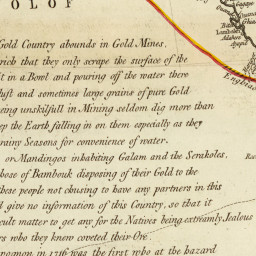 OLOF
Gold Country abounds in Gold Mines.
rich that they only scrape the surface of the
it in a Bowl and pouring off the water there
dust and sometimes large grains of pure Gold
being unskilfull in Mining seldom dig more than
ep the Earth falling in on them especially as they
rainy Seasons for convenience of water.
or Mandingos inhabiting Galam and the Serakoles.
hose of Bambouk disposing of their Gold to the
these people not chusing to have any partners in this
d give no information of this Country, so that it
cult matter to get any for the Natives being extreamly Jealous
rs who they knew coveted their Ore.
in 1716 was the first who at the hazard
Gagape
Lambaye
Embaul